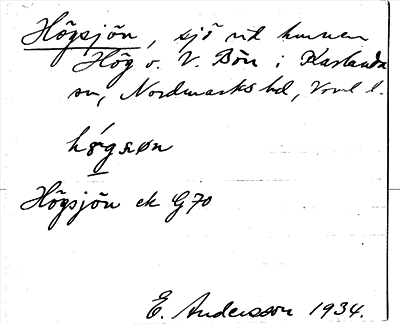 Högsjön, sjö vid hunnen
Hög o. V. Bön i Karlanda
sn, Nordmarks hd, Vrml l.
Högsjön ek G70
E. Andersson 1934.